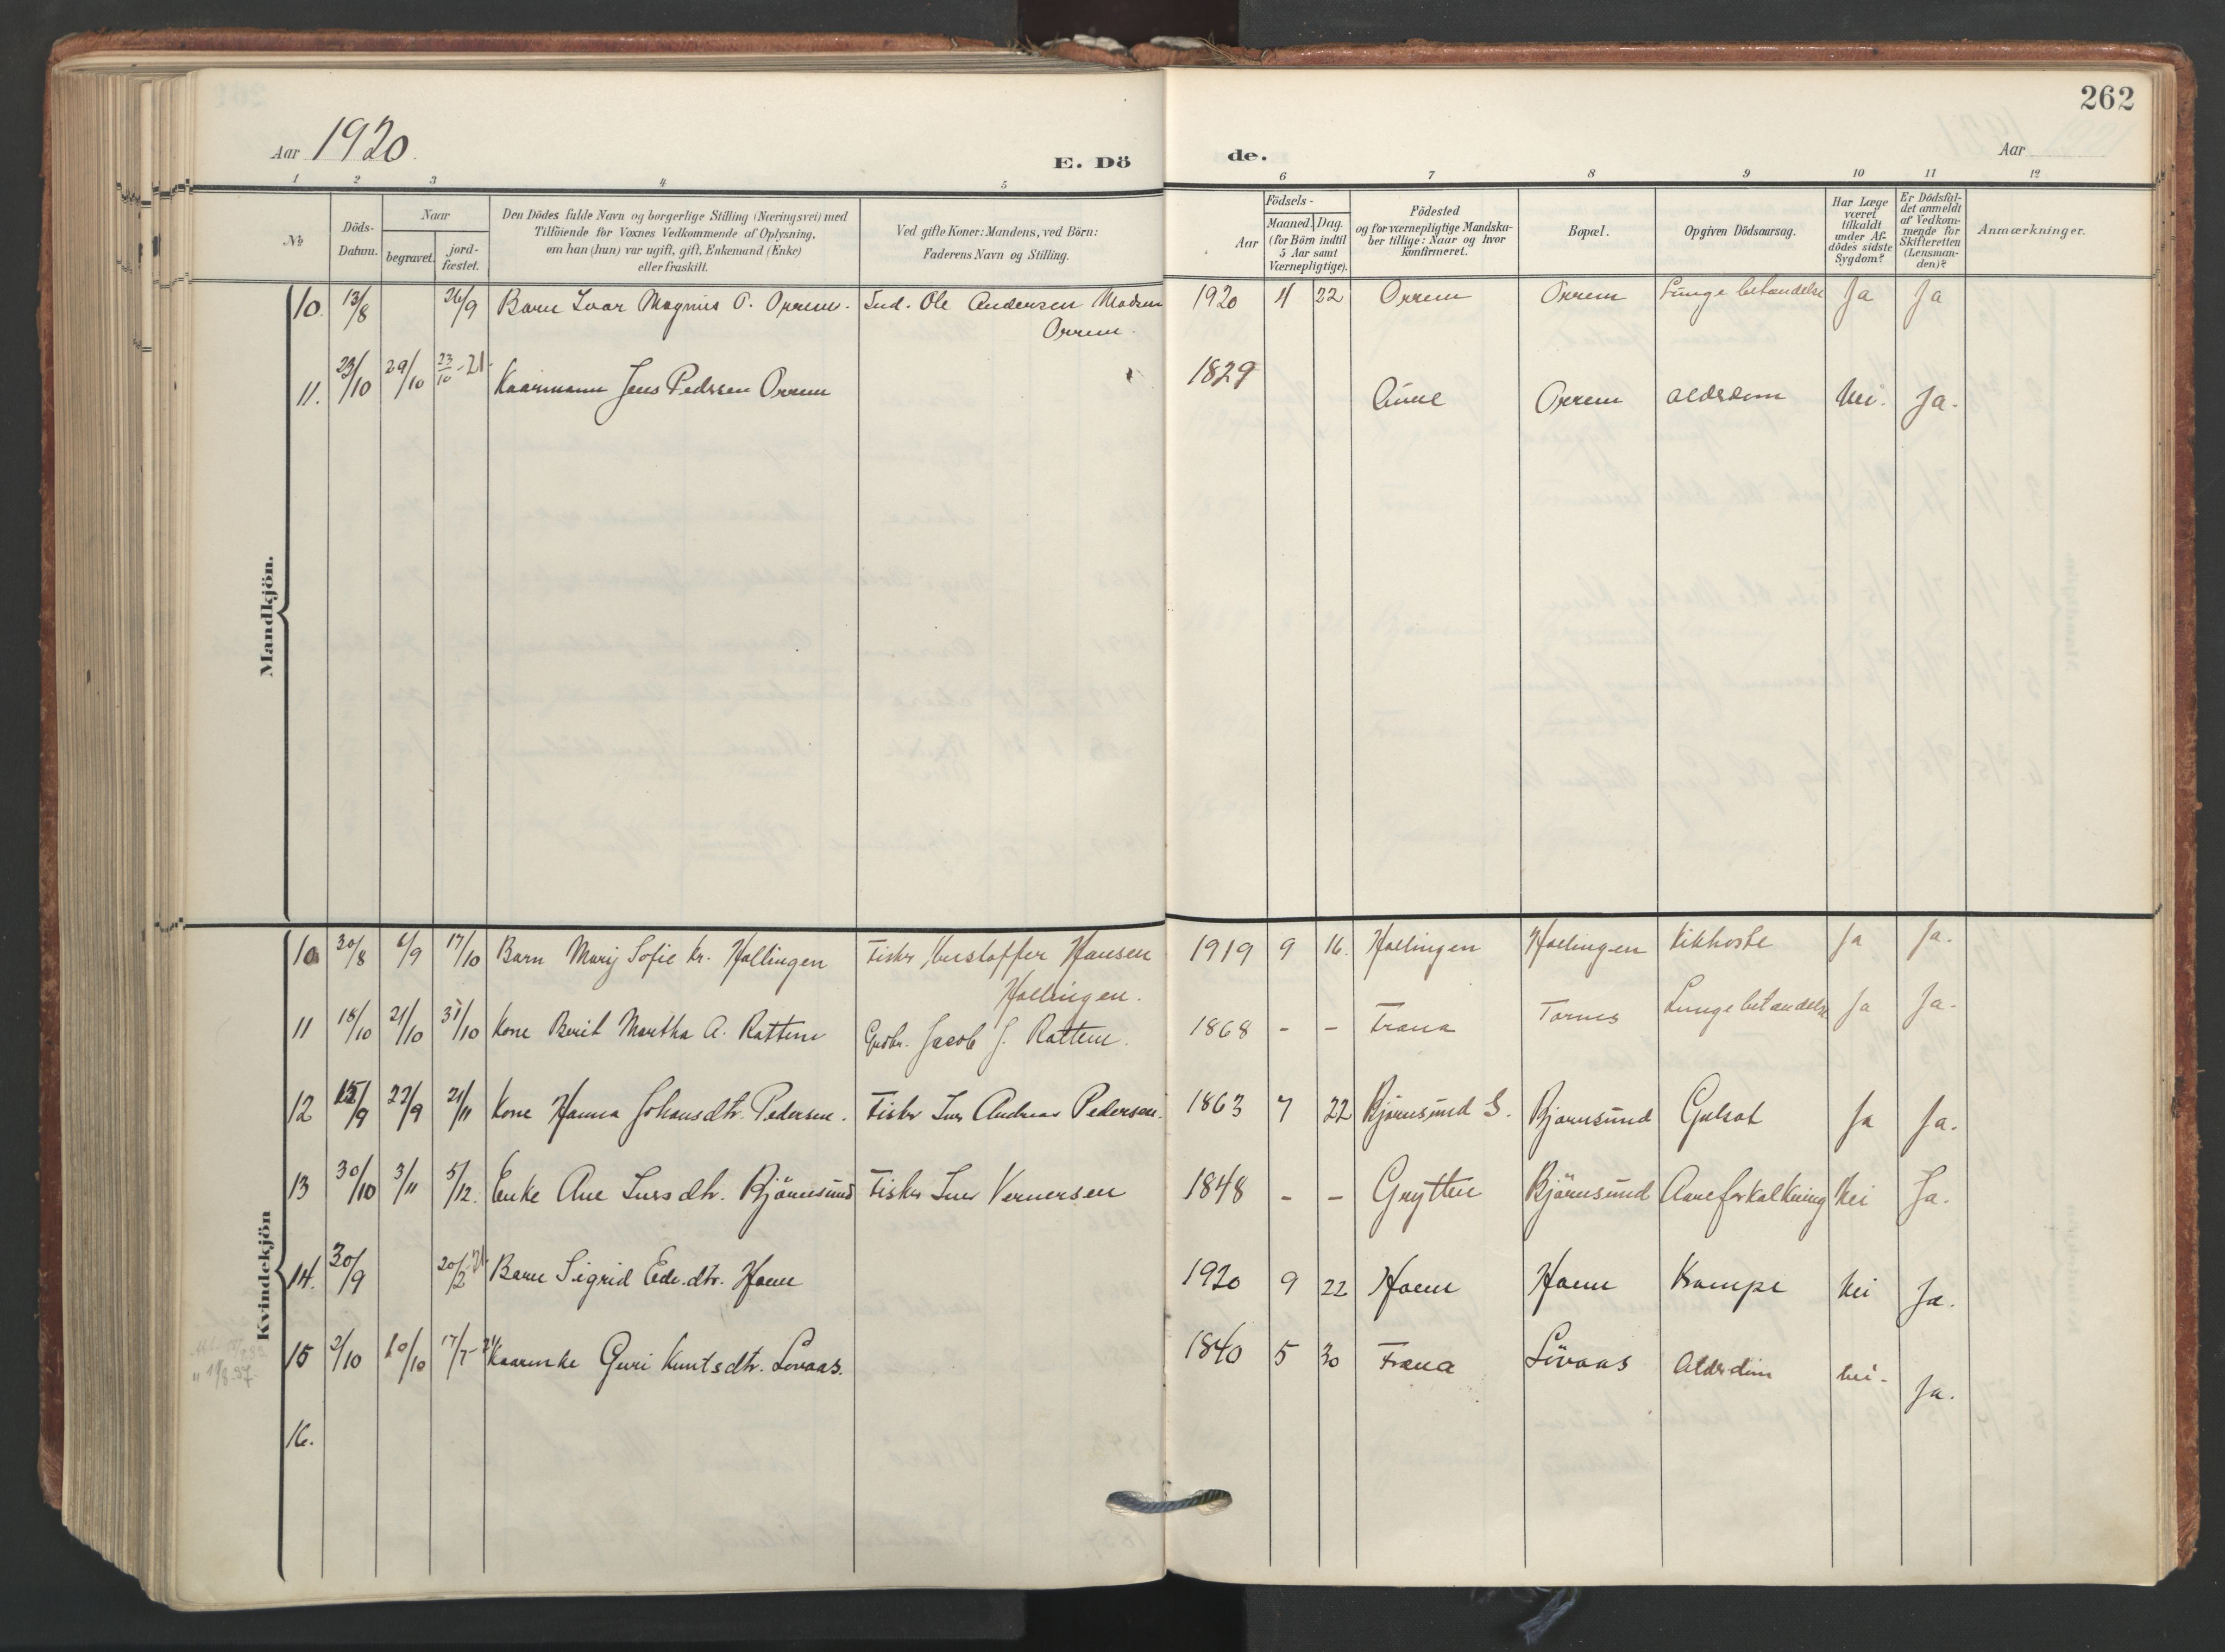 262
Aar 1920.
E. Dö de.
Aar
1 2 3 4 5 6 7 8 9 10 11 12
№
Döds-Datum.
Naar
begravet.
jord-fæstet.
Den Dödes fulde Navn og borgerlige Stilling (Næringsvei) med
Tilföiende for Voxnes Vedkommende af Oplysning,
om han (hun) var ugift, gift, Enkemand (Enke)
eller fraskilt.
Ved gifte Koner: Mandens, ved Börn:
Faderens Navn og Stilling.
Födsels-
Aar
Maaned. Dag.
(for Börn indtil
5 Aar samt
Værnepligtige).
Födested
og for værnepligtige Mandska-
ber tillige: Naar og hvor
konfirmeret.
Bopæl.
Opgiven Dödsaarsag.
Har Læge
været
tilkaldt
under Af-
dödes sidste
Sygdom?
Er Dödsfal-
det anmeldt
af Vedkom-
mende for
Skifteretten
(Lensman-
den)?
Anmærkninger.
Mandkjön.
10. 13/8 26/9 Barn Ivar Magnus O. Orrem. Ind. Ole Andersen Madsen 1920 4 22 Orrem Orrem Lungebetændelse Ja Ja
Orrem.
11. 23/10 29/10 23/10-21. Kaarmann Jens Pedersen Orrem 1829 Aure Orrem alderdom Nei. Ja.
Kvindekjön
10 30/8 6/9 17/10 Barn Mary Sofie Kr. Hollingen Fisker Kristoffer Hansen 1919 9 16. Hollingen Hollingen Kikhoste Ja Ja.
Hollingen.
11 18/10 21/10 31/10 Kone Berit Martha A. Rottem Grdbr. Jacob J. Rottem. 1868 - - Fræna Tornes Lungebetændelse Ja Ja.
12 15/9 22/9 21/11 Kone Hanna Johansdtr. Pedersen. Fisker Iver Andreas Pedersen. 1863 7 22 Björnsund S. Bjornsund Gulsot Ja Ja.
13 30/10 3/11 5/12. Enke Ane Iversdtr. Björnsund Fisker Iver Vernersen 1848 - - Grytten Björnsund Aareforkalkning Nei Ja.
14. 30/9 20/2 21 Barn Sigrid Edv.dtr. Hoem 1920 9 22 Hoem Hoem Krampe Nei Ja.
15 2/10 10/10 17/7-21 Kaarenke Guri Knutsdtr. Lovaas. 1840 5 30 Fræna Lövaas Alderdom nei. Ja.
16.